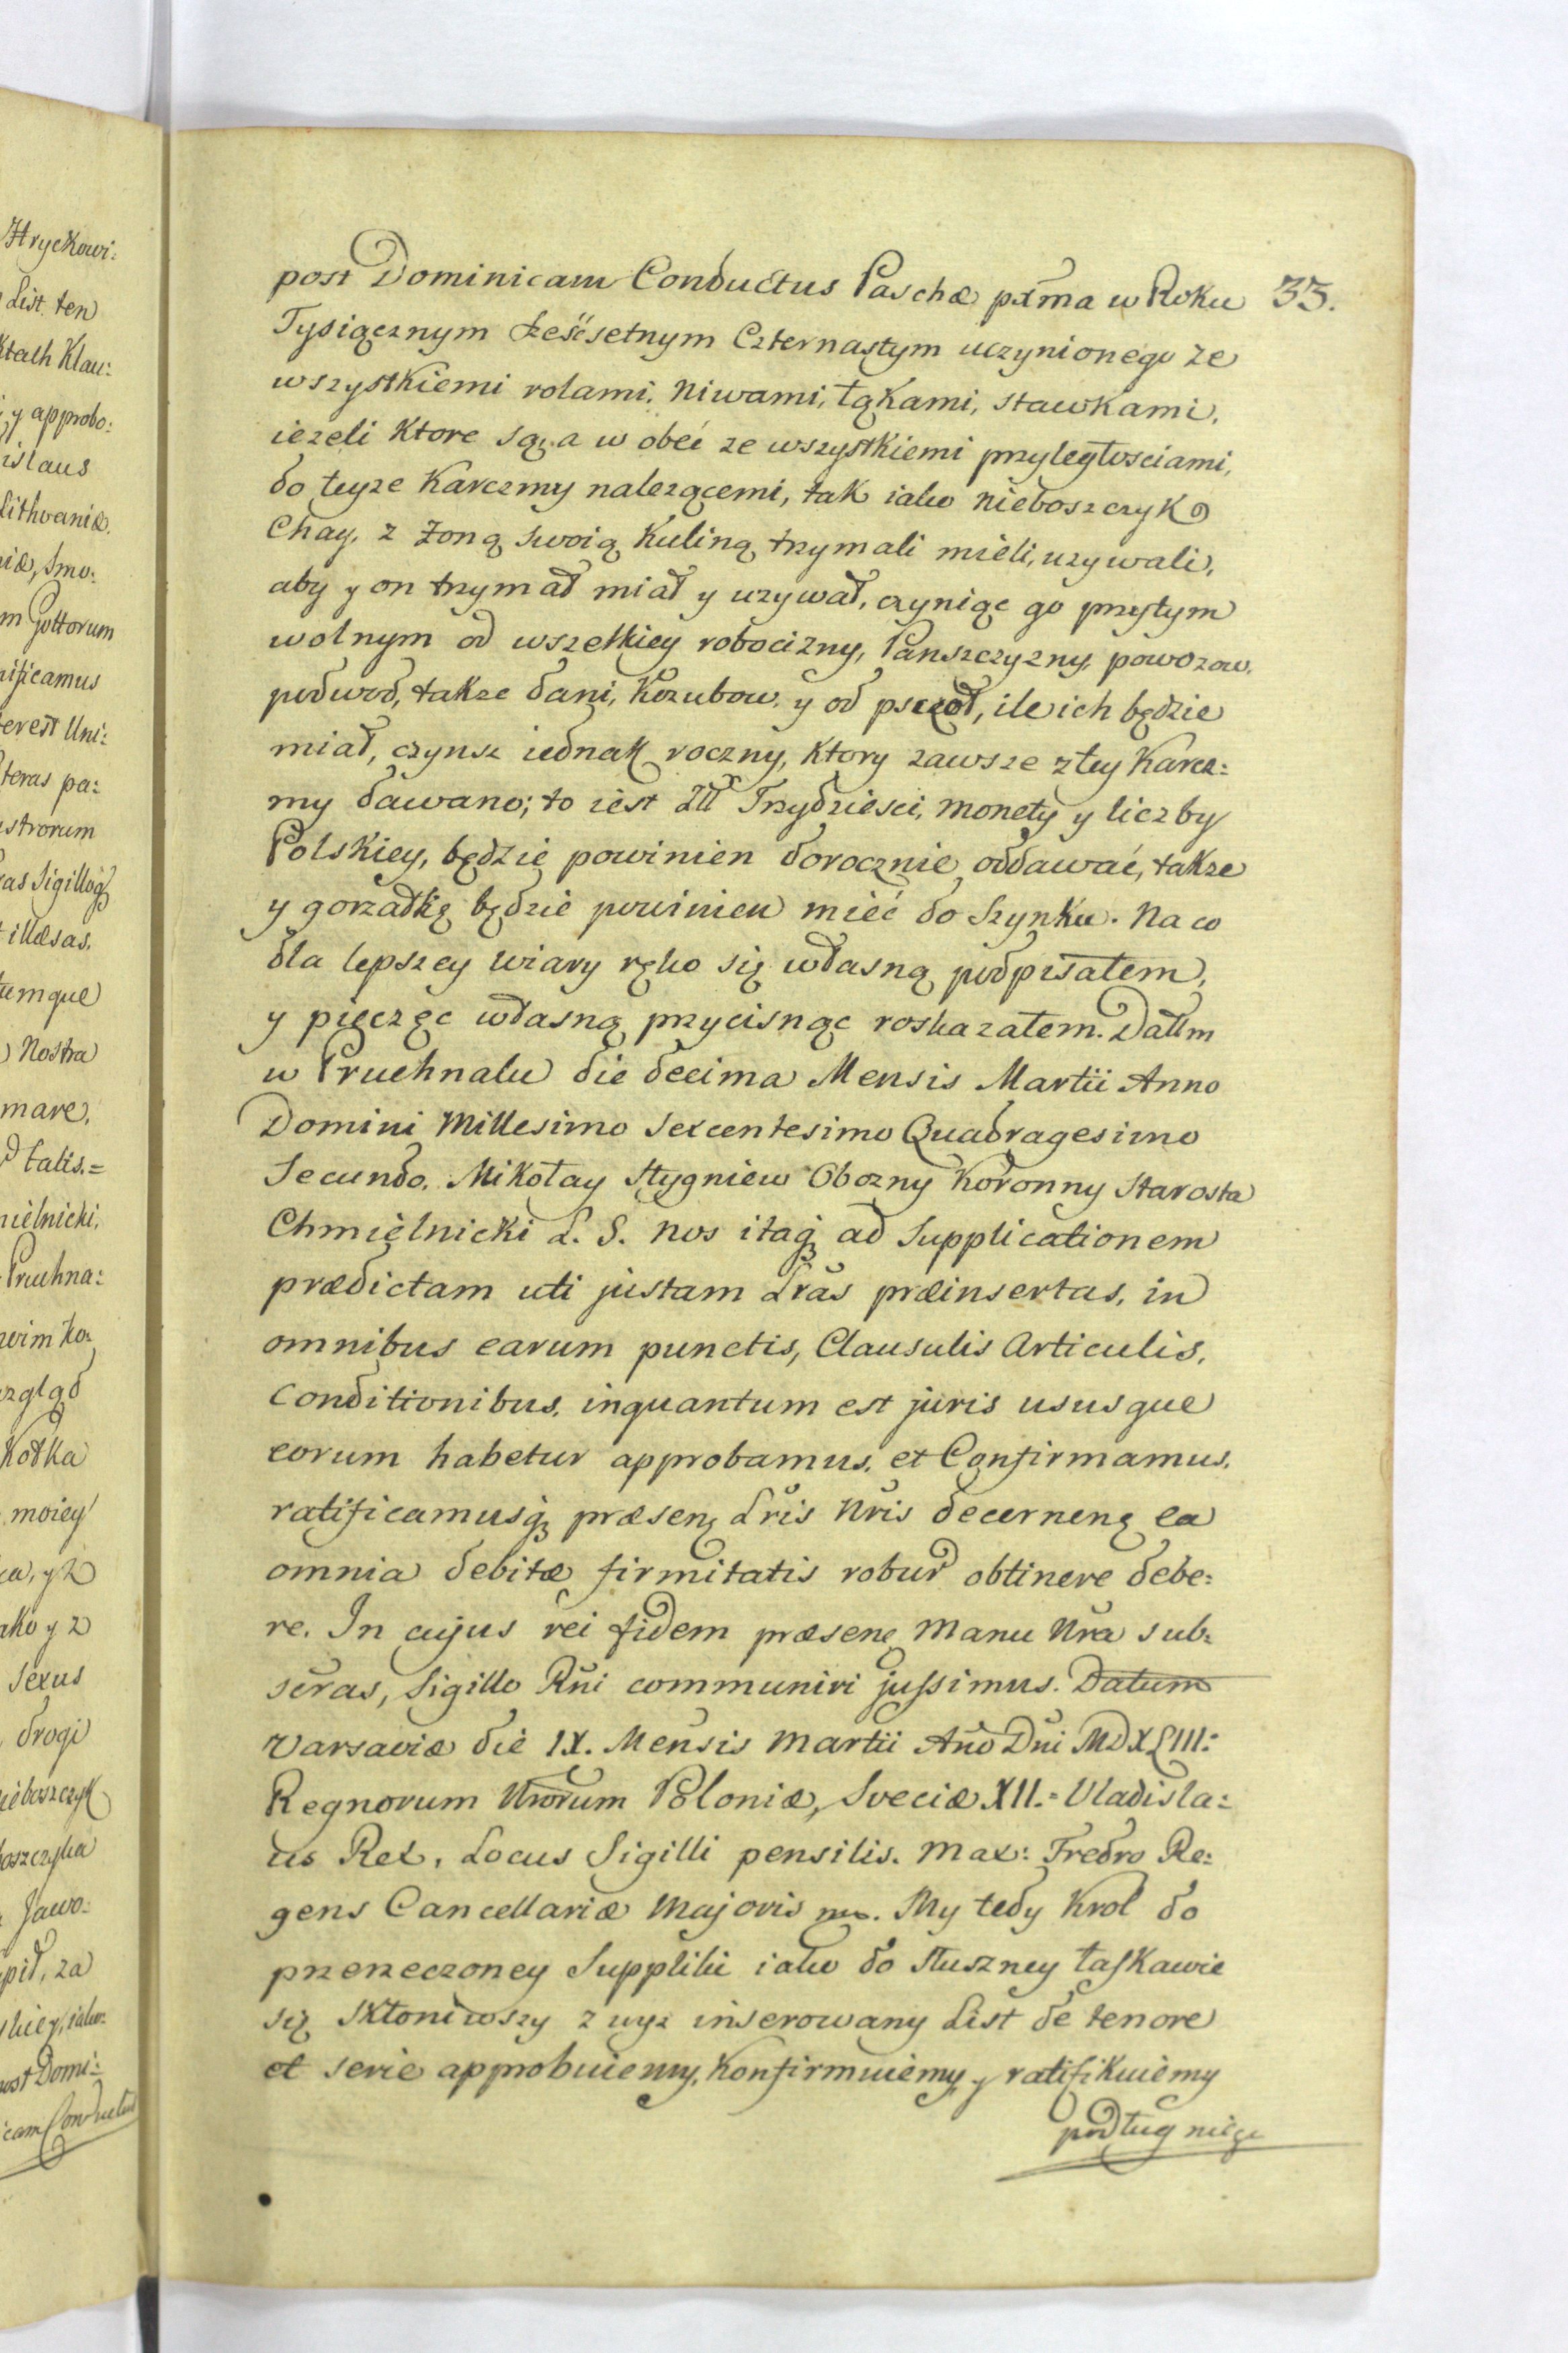 Hryckowi:
List ten
ktach Klau:
y approbo:
islaus
Lithvaniæ
iæ, Smo:
m Gottorum
nificamus
erest Uni:
teras pa:
strorum
as Sigilloq
illæsas.
tumque
Nostra
mare.
talis.=
mielnicki,
Pruchna:
woim ko:
wzgląd
Kotka
moiey
ca, y z
ako y z
Sexus
drogi
nieboszczyk
boszczyka
Jawo:
pił, za
skiey, iako:
post Domi:
icam Conductus
33.
post Dominicam Conductus Paschæ pxma w Roku
Tysiącznym sześćsetnym Czternastym uczynionego ze
wszystkiemi rolami, Niwami, łąkami, stawkami,
iezeli ktore są, a w obec ze wszystkiemi przyległosciami,
do teyze Karczmy nalezącemi, tak iako nieboszczyk
Chay, z żoną swoią Kuliną trzymali mieli, uzywali,
aby y on trzymał miał y uzywał, czyniąc go przytym
wolnym od wszelkiey robocizny, Panszczyzny, powozow,
podwod, takze dani, Kozubow, y od pszczoł, ile ich będzie
miał, czynsz iednak roczny, ktory zawsze z tey Karcz:
my dawano; to iest Złł Trzydziesci, monety y liczby
Polskiey, będzie powinien dorocznie oddawać, takze
y gorzałkę będzie powinien mieć do Szynku. Na co
dla lepszey wiary ręko się własną podpisałem,
y pięczęc własną przycisnąc roskazałem. Dattm
w Pruchnaku die decima Mensis Martii Anno
Domini Millesimo sexcentesimo Quadragesimo
Secundo. Mikołay Stygniew Obozny Koronny Starosta
Chmielnicki L. S. nos itaq ad Supplicationem
prædictam uti justam Lras præinsertas, in
omnibus earum punctis, Clausulis Articulis,
Conditionibus, inquantum est juris ususque
eorum habetur approbamus, et Confirmamus,
ratificamusq præsen Lris Nris decernen ea
omnia debitæ firmitatis robur obtinere debe:
re. In cujus rei fidem præsene Manu Nra sub:
scras, Sigillo Rni communiri jussimus. Datum
Varsaviæ die IX. Mensis Martii Año Dni MDXLIII:
Regnorum Nrorum Poloniæ, Sveciæ XII.= Vladisla:
us Rex, Locus Sigilli pensilis. Max: Fredro Re:
gens Cancellariæ Majoris mp. My tedy Krol do
przerzeczoney Suppliki iako do słuszney łaskawie
się skłoniwszy zwyz inserowany List de tenore
et serie approbuiemy, Konfirmuiemy, y ratifikuiemy
podług niego